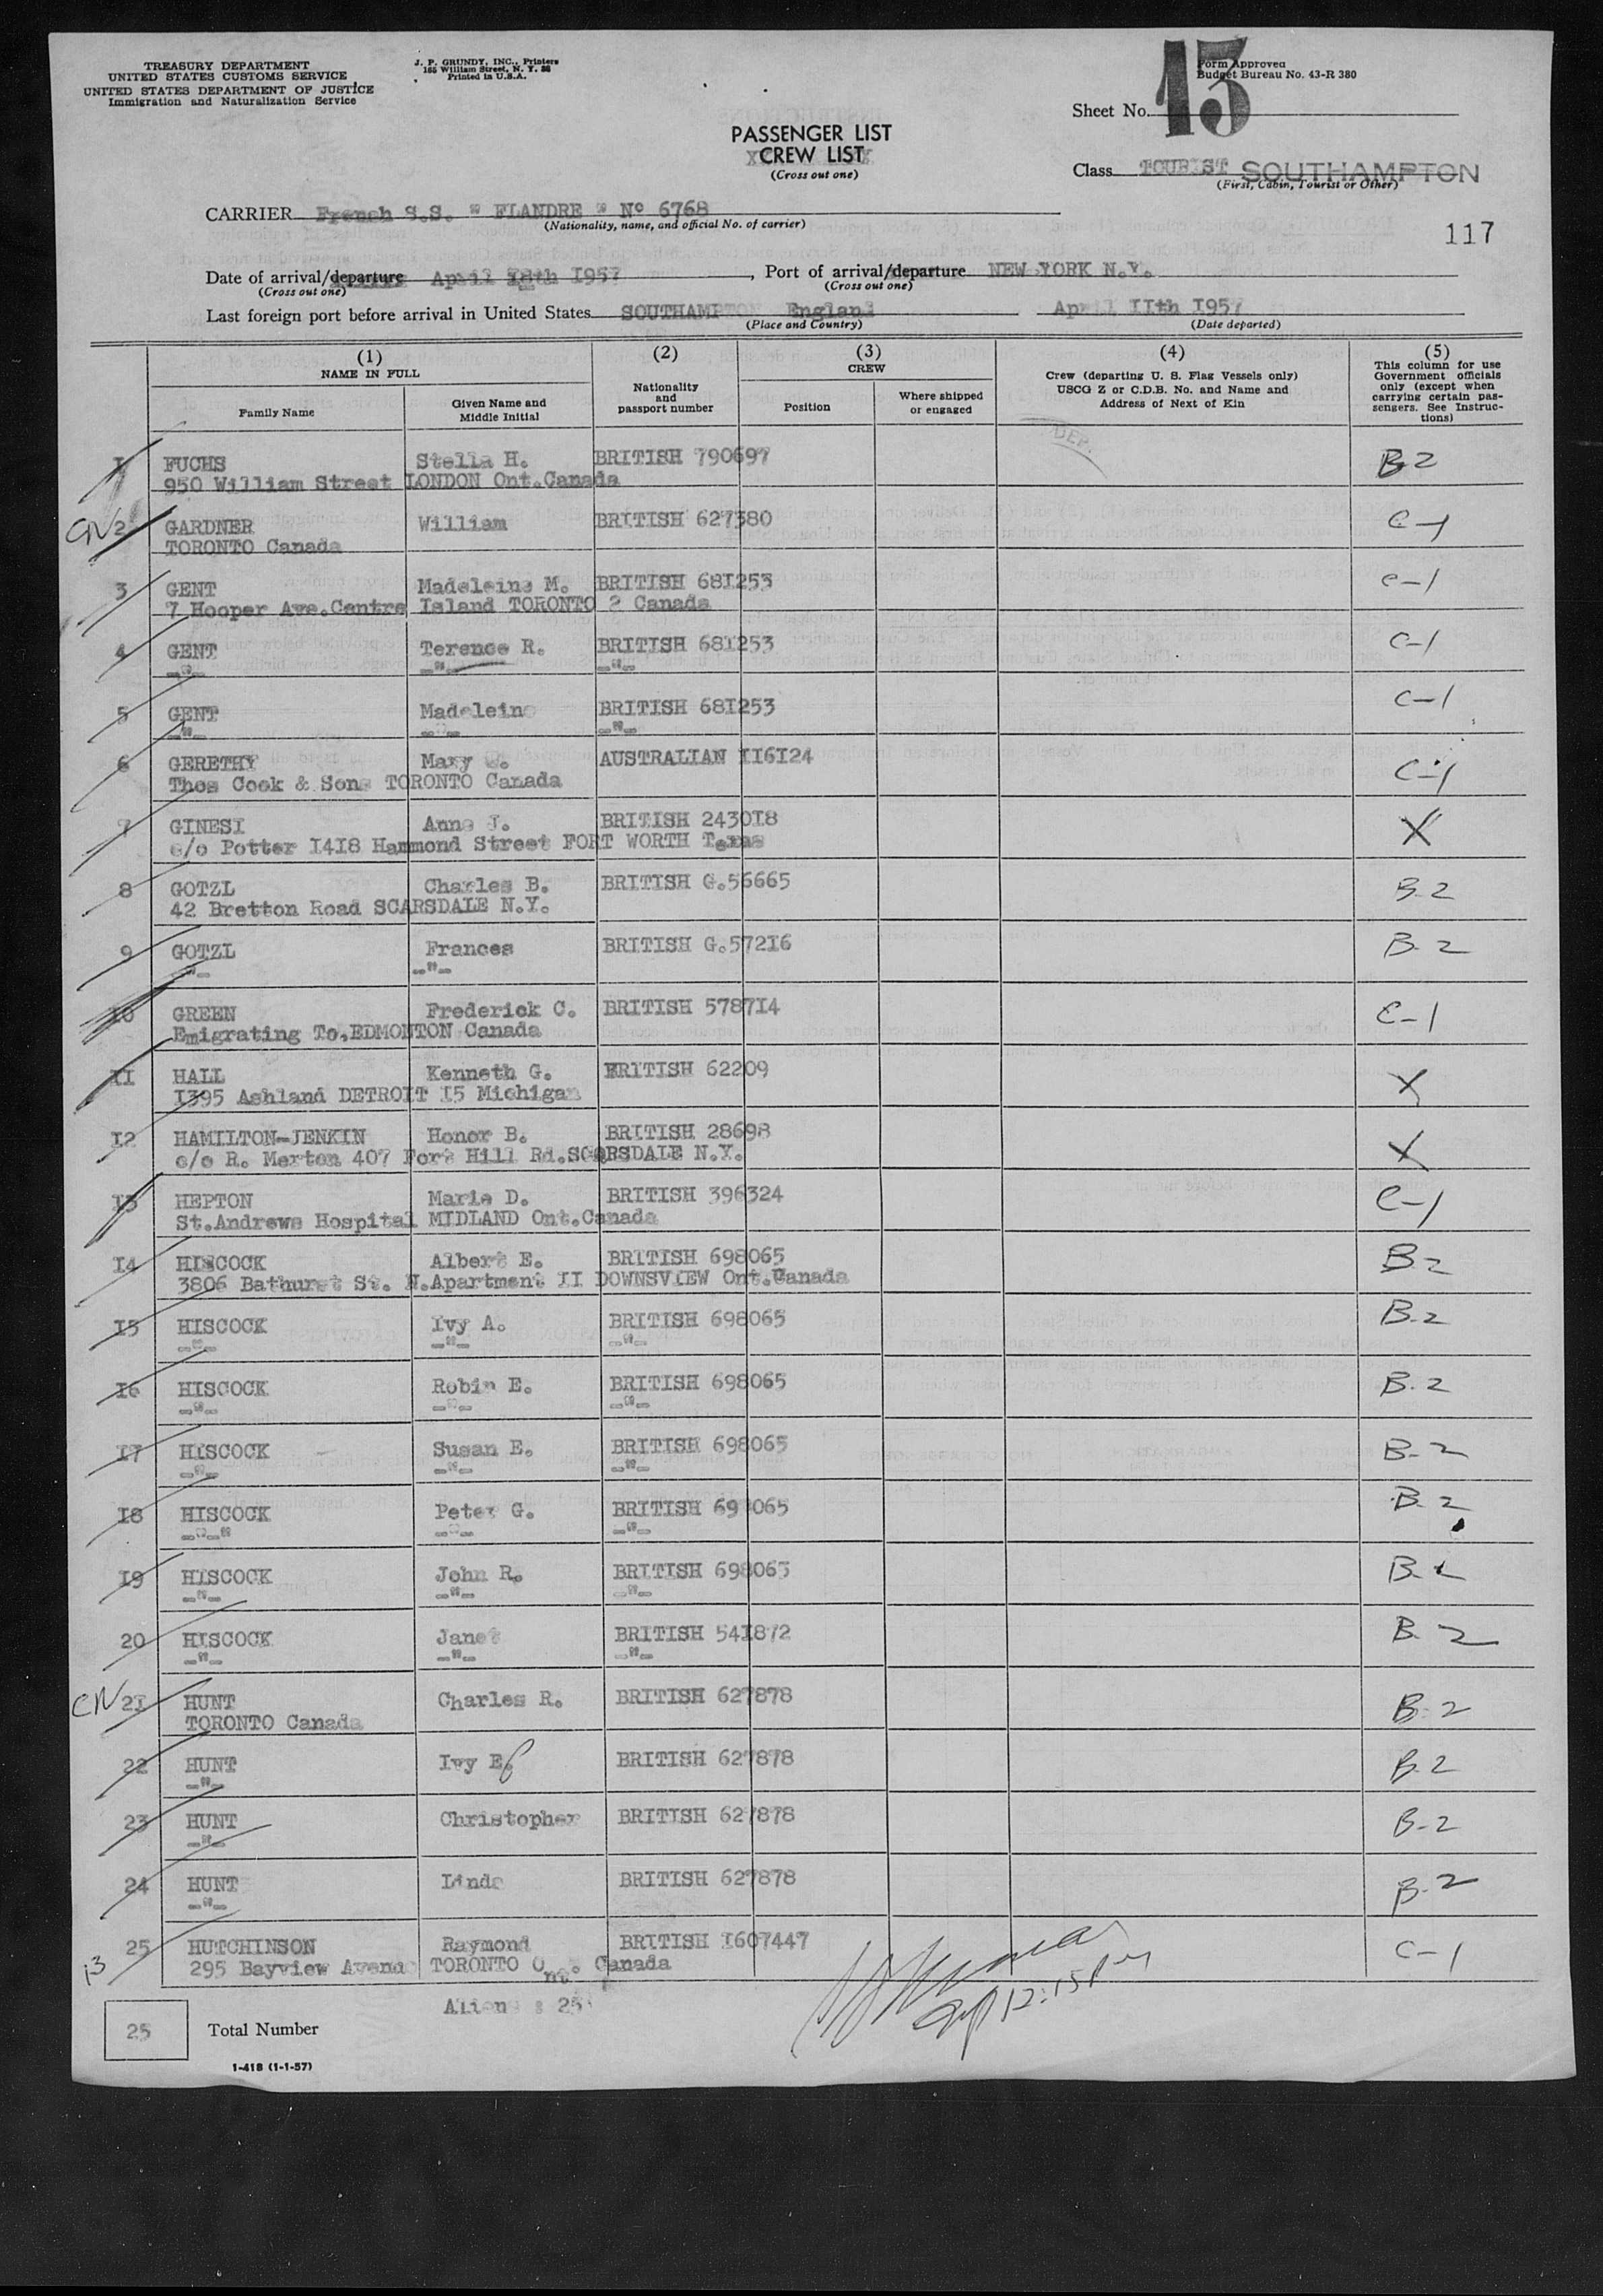 TREASURY DEPARTMENT
UNITED STATES CUSTOMS SERVICE
UNITED STATES DEPARTMENT OF JUSTICE
Immigration and Naturalization Service
J. P. GRUNDY, INC., Printers
165 William Street, N. Y. 38
Printed in U.S.A.
Form Approved
Budget Bureau No. 43-R 380
Sheet No. 15
PASSENGER LIST
CREW LIST
(Cross out one)
Class TOURIST SOUTHAMPTON
(First, Cabin, Tourist or Other)
CARRIER French S.S. " FLANDRE " Nº 6768
(Nationality, name, and official No. of carrier)
117
Date of arrival/departure April 18th 1957, Port of arrival/departure NEW YORK N.Y.
(Cross out one) (Cross out one)
Last foreign port before arrival in United States SOUTHAMPTON England April IIth 1957
(Place and Country) (Date departed)
(1) NAME IN FULL
Family Name
Given Name and Middle Initial
(2)
Nationality and passport number
(3) CREW
Position
Where shipped or engaged
(4)
Crew (departing U. S. Flag Vessels only)
USCG Z or C.D.B. No. and Name and
Address of Next of Kin
(5)
This column for use Government officials only (except when carrying certain passengers. See Instructions)
DEP.
I FUCHS Stella H. BRITISH 790697 B2
950 William Street LONDON Ont.Canada
CN 2 GARDNER William BRITISH 627380 C-1
TORONTO Canada
3 GENT Madeleine M. BRITISH 68I253 C-1
7 Hooper Ave.Centre Island TORONTO 2 Canada
4 GENT Terence R. BRITISH 68I253 C-1
-"- -"- -"-
5 GENT Madeleine BRITISH 68I253 C-1
-"- -"- -"-
6 GERETHY Mary AUSTRALIAN II6I24 C-1
Thos Cook & Sons TORONTO Canada
7 GINESI Anne J. BRITISH 2430I8 X
c/o Potter I4I8 Hammond Street FORT WORTH Texas
8 GOTZL Charles B. BRITISH G.56665 B-2
42 Bretton Road SCARSDALE N.Y.
9 GOTZL Frances BRITISH G.572I6 B-2
-"- -"-
I0 GREEN Frederick C. BRITISH 5787I4 C-1
Emigrating To,EDMONTON Canada
II HALL Kenneth G. BRITISH 62209 X
I395 Ashland DETROIT I5 Michigan
I2 HAMILTON-JENKIN Honor B. BRITISH 28698 X
c/o R. Merton 407 Fort Hill Rd.SCARSDALE N.Y.
I3 HEPTON Marie D. BRITISH 396324 C-1
St.Andrews Hospital MIDLAND Ont.Canada
I4 HISCOCK Albert E. BRITISH 698065 B2
3806 Bathurst St. N.Apartment II DOWNSVIEW Ont.Canada
I5 HISCOCK Ivy A. BRITISH 698065 B-2
-"- -"- -"-
I6 HISCOCK Robin E. BRITISH 698065 B-2
-"- -"- -"-
I7 HISCOCK Susan E. BRITISH 698065 B-2
-"- -"- -"-
I8 HISCOCK Peter G. BRITISH 698065 B-2
-"-" -"- -"-
I9 HISCOCK John R. BRITISH 698065 B-2
-"- -"- -"-
20 HISCOCK Janet BRITISH 54I872 B-2
-"- -"- -"-
CN 2I HUNT Charles R. BRITISH 627878 B-2
TORONTO Canada
22 HUNT Ivy E. BRITISH 627878 B-2
-"-
23 HUNT Christopher BRITISH 627878 B-2
-"-
24 HUNT Linda BRITISH 627878 B-2
-"-
25 HUTCHINSON Raymond BRITISH I607447 C-1
13 295 Bayview Avenue TORONTO Ont. Canada
Aliens : 25
12:15 pm
25 Total Number
1-418 (1-1-57)